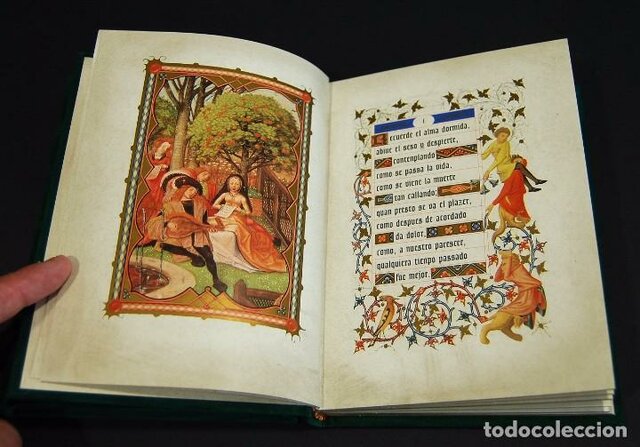 I
Recuerde el alma dormida,
abive el seso y despierte,
contemplando
como se passa la vida,
como se viene la muerte
tan callando:
quan presto se va el plazer,
como despues de acordado
da dolor,
como, a nuestro parescer,
qualquiera tiempo passado
fue mejor.
todocoleccion